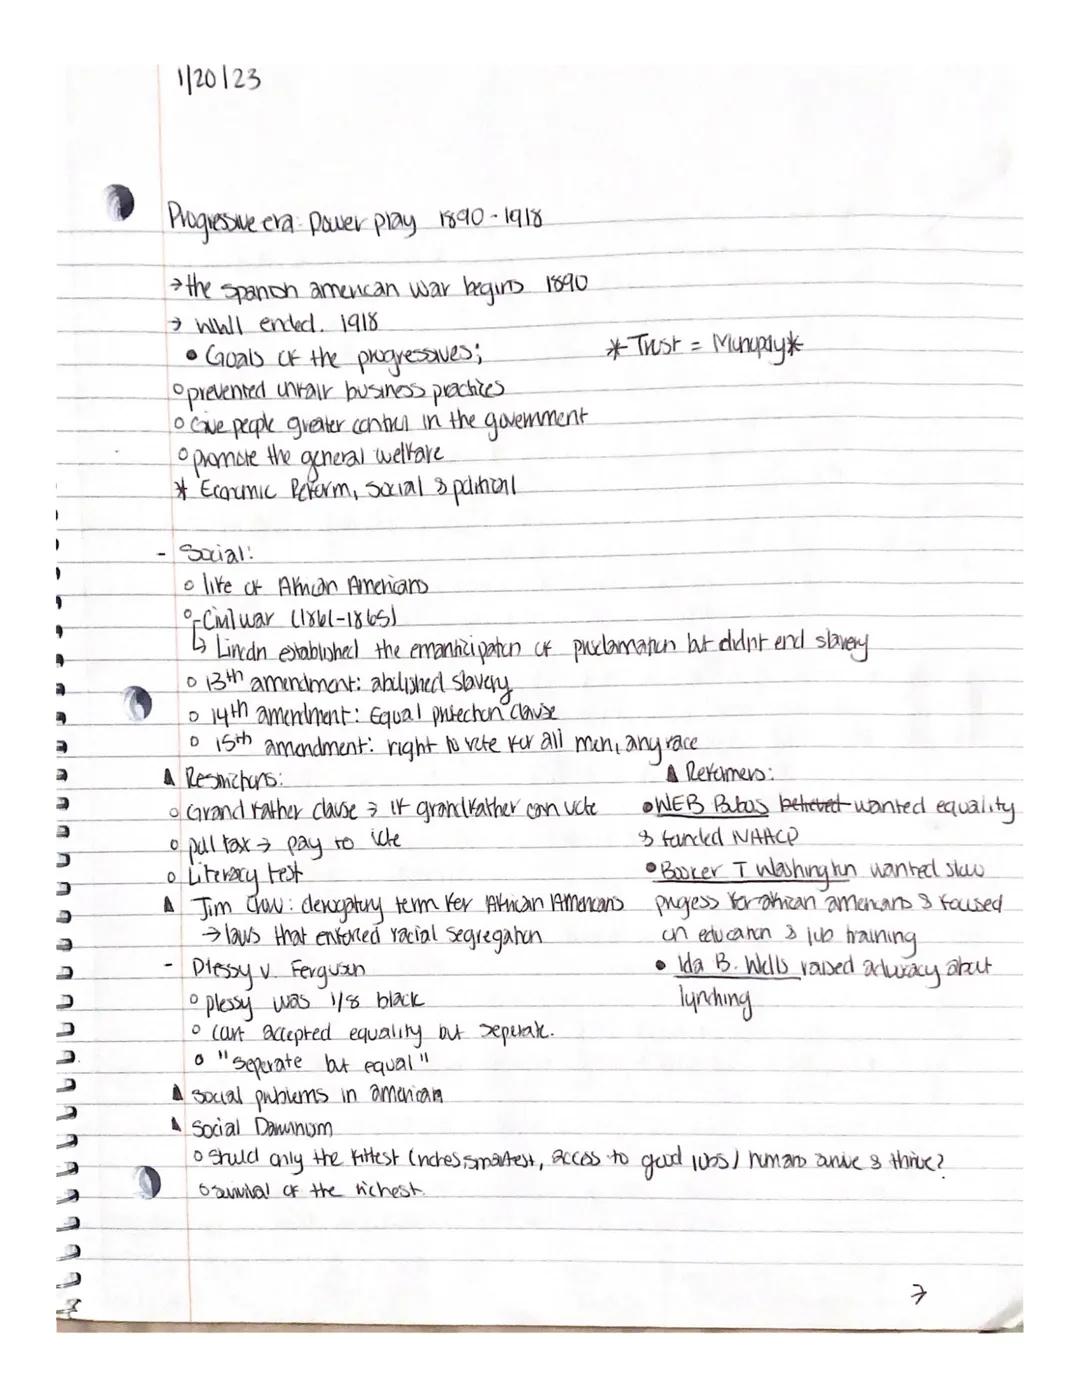 1/20/23
Progressive era: Power play 1890-1918
→ the spanish american war begins 1890
→ WWI ended. 1918
• Goals of the progressives;
* Trust = Munuply *
o prevented unfair business practices
o Give people greater control in the government
o promote the general welfare
* Economic Reform, social & political
- Social:
o life of African Americans
o - Civil war (1861-1865)
↳ Lincoln established the emanticipation of proclamation but didn't end slavery
o 13th amendment: abolished slavery
o 14th amendment: Equal protection clause
o 15th amendment: right to vote for all men, any race
▲ Restrictions:
o Grand father clause → if grandfather can vote
o poll tax → pay to vote
o Literacy test
▲ Jim Crow: derogatory term for African Americans
→ laws that enforced racial segregation
- Plessy v. Ferguson
o plessy was 1/8 black
o court accepted equality but seperate.
o "seperate but equal"
▲ Reformers:
• WEB Dubois believed wanted equality
& funded NAACP
• Booker T Washington wanted slow
progess for african americans & foused
on education & job training
• Ida B. Wells raised advocacy about
lynching
▲ social problems in american
▲ Social Darwinism
o should only the fittest (riches, smartest, access to good jobs) humans survive & thrive?
o survival of the richest.
→